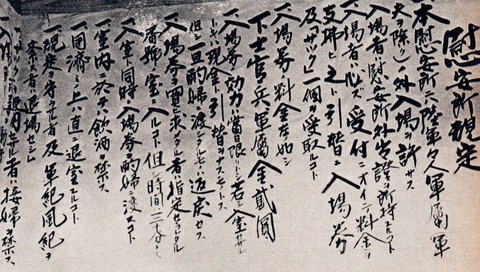 慰安所規定
一、本慰安所ニハ陸軍々人軍属(軍
夫ヲ除ク)ノ外入場ヲ許サス
一、入場者ハ慰安所外出證ヲ所持スルコト
一、入場者ハ必ズ受付ニオイテ料金ヲ
支拂ヒ之ト引替ニ入場券
及「サック」一個ヲ受取ルコト
一、入場券ノ料金左ノ如シ
下士官兵軍属金貳圓
一、入場券ノ効力ハ當日限トシ若シ入室セサル
トキハ現金ト引替ヲナスモノトス
但シ一旦酌婦ニ渡シタルモノハ返戻セス
一、入場券ヲ買求メタル者ハ指定セラレタル
番號ノ室ニ入ルコト但シ時間ハ三十分トス
一、入室ト同時ニ入場券ヲ酌婦ニ渡スコト
一、室内ニ於テハ飲酒ヲ禁ス
一、用済ミノ上ハ直ニ退室スルコト
一、規定ヲ守ラサル者及軍紀風紀ヲ
紊ス者ハ退場セシム
一、サックヲ使用セサル者ハ接婦ヲ禁ス